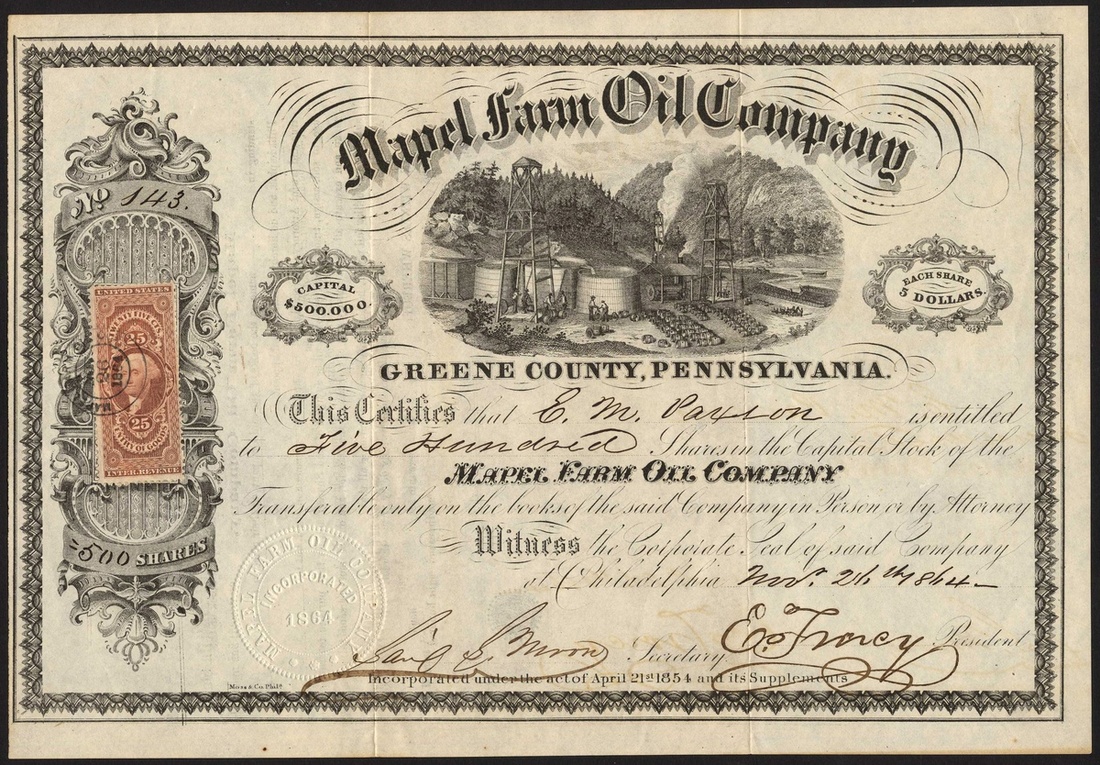 Mapel Farm Oil Company
No 143.
CAPITAL
$500.000.
EACH SHARE
5 DOLLARS.
GREENE COUNTY, PENNSYLVANIA.
This Certifies that E. M. Paxson is entitled
to Five Hundred Shares in the Capital Stock of the
MAPEL FARM OIL COMPANY
Transferable only on the books of the said Company in Person or by Attorney
Witness the Corporate Seal of said Company
at Philadelphia Novr 26th 1864
Secretary
President
Incorporated under the act of April 21st 1854 and its Supplements
UNITED STATES
TWENTY FIVE CTS.
25
25
INTER. REVENUE
500 SHARES
MAPEL FARM OIL COMPANY
INCORPORATED
1864
Moss & Co. Phila.